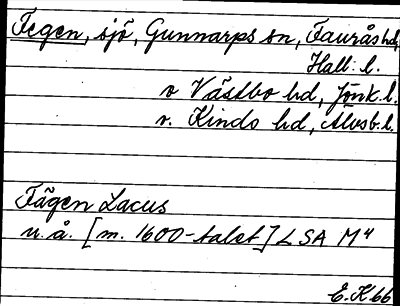 Fegen, sjö, Gunnarps sn, Faurås hd,
Hall. l.
o Västbo hd, Jönk. l.
o. Kinds hd, Älvsb. l.
Fägen Lacus
u.å. [m. 1600-talet] LSA M4
E.K 66